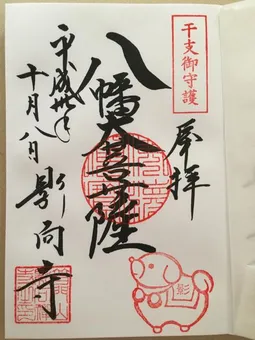 干支御守護
奉拝
八幡大菩薩
平成卅年
十月八日
影向寺
影